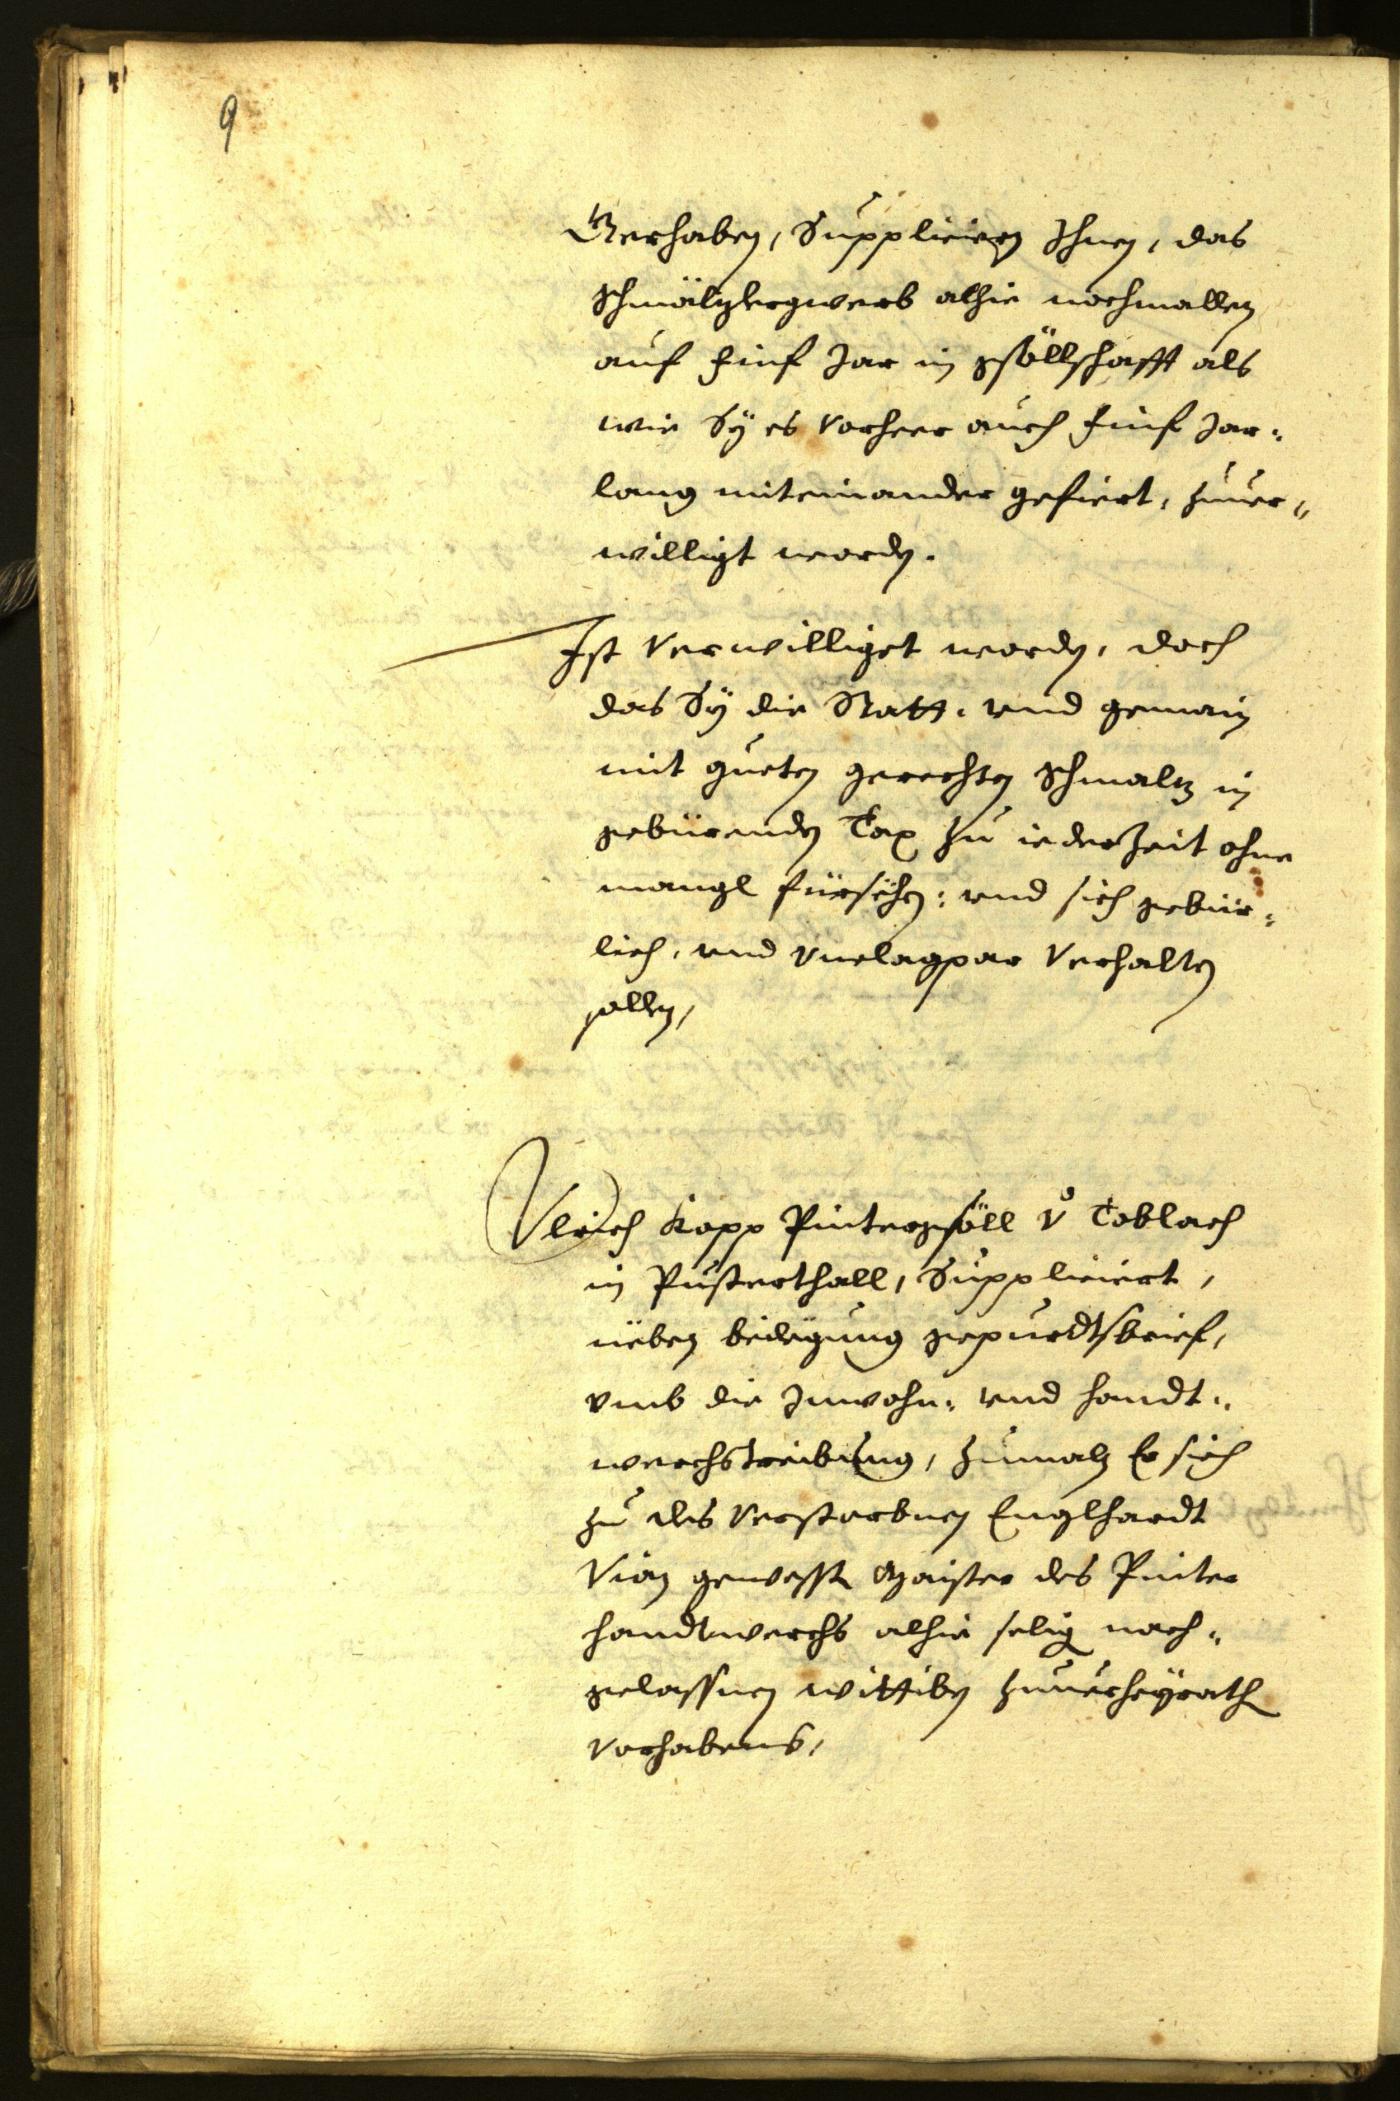 9
Gerhaben, Supplicieren Ihnen, das
Schmälzlergwerb alhie nochmallen
auf finf Jar in gsöllschafft als
wie Sÿ es vorheer auch finf Jar¬
lang miteinander gefiert, zuuer¬
willigt worden.
Ist Verwilliget worden, doch
das Sÿ die Statt, und gemain
mit gueten gerechten Schmalz in
gebürenden Tax zu iederzeit ohne
mangl fürsehen: und sich gebür¬
lich, und Vnclagpar Verhalten
sollen,
Vlrich Kapp Pintergsöll v Toblach
in Pusterthall, Suppliciert,
neben beilegung gepurdtsbrief,
vmb die Inwohn: und handt¬
werchstreibung, Zumaln Er sich
zu des Verstorbnen Englhardt
gewesste Maister des Pinter
handtwerchs alhie selig nach¬
gelassnen wittiben zuuerheyrath
Vorhabens,